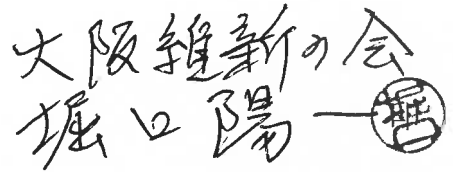 大阪維新の会
堀口陽一